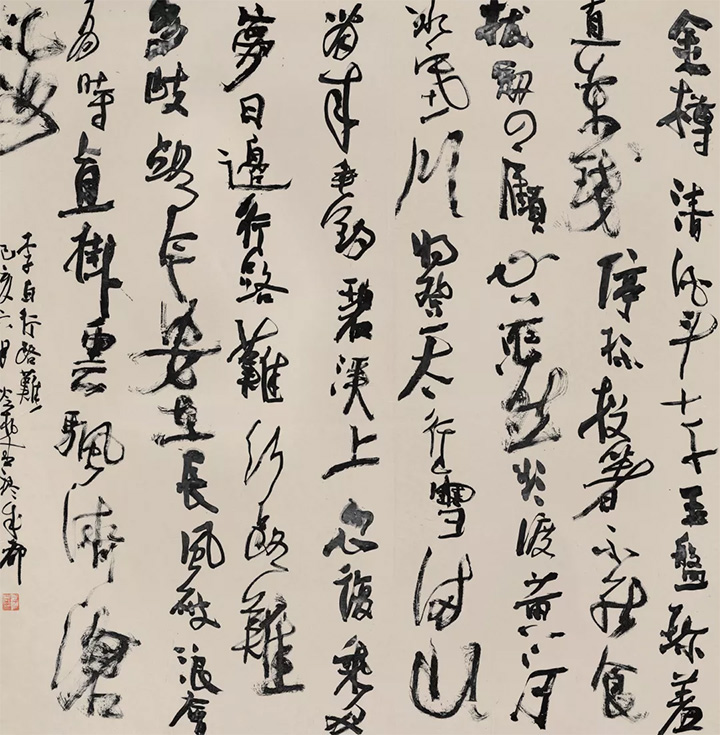 金樽清酒斗十千玉盤珍羞
直萬錢停杯投箸不能食
拔劍四顧心茫然欲渡黄河
冰塞川將登太行雪滿山
閒來垂釣碧溪上忽復乘舟
夢日邊行路難行路難
多歧路今安在長風破浪會
有時直掛雲颿濟滄
海
李白行路難
己亥六月 成都